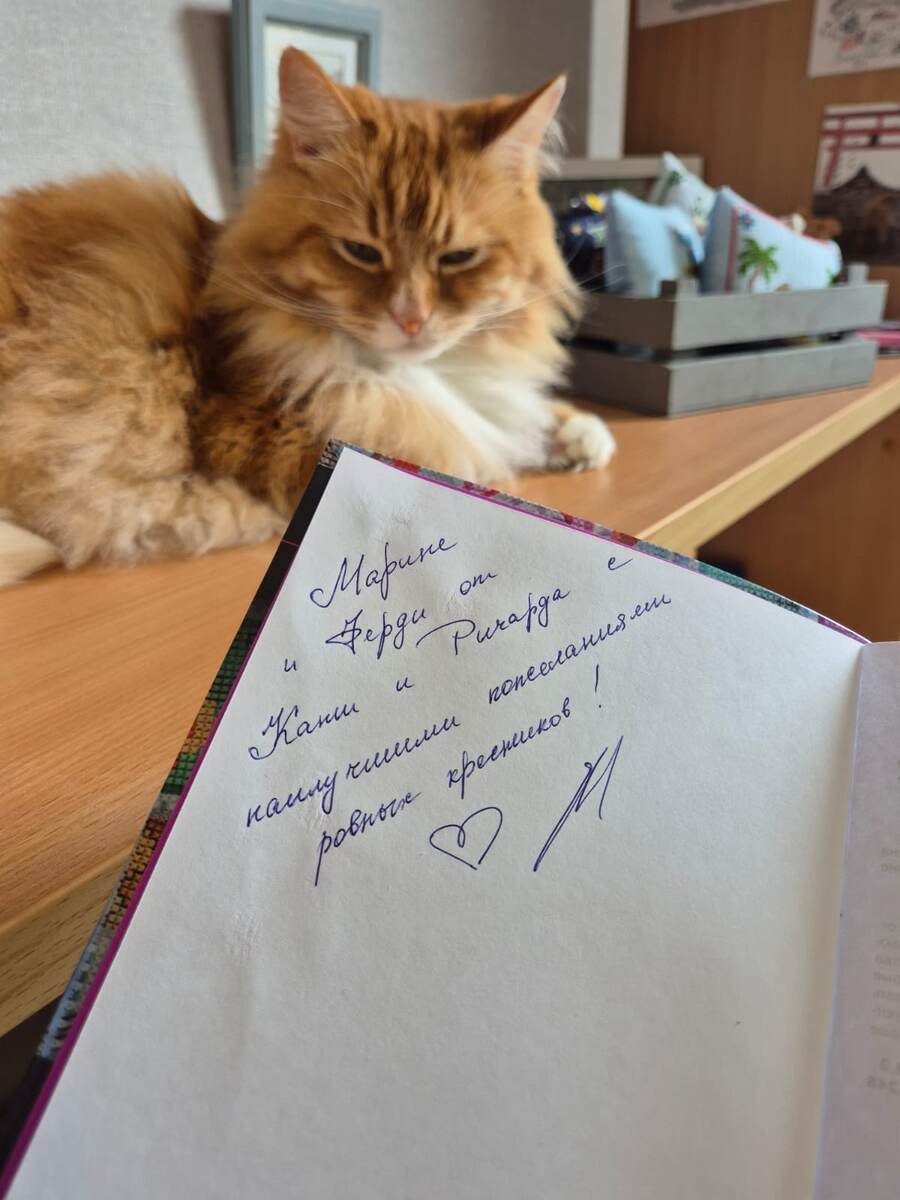 Марине
и Ферди от
Кати и Ричарда с
наилучшими пожеланиями
ровных крестиков!